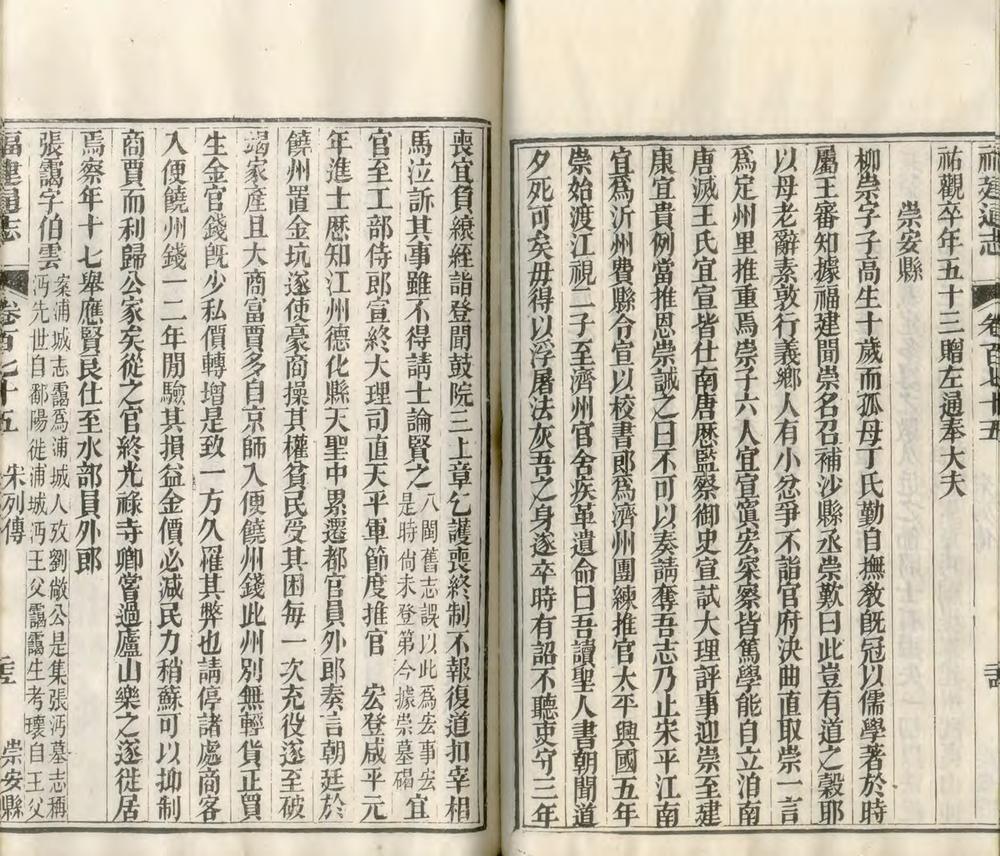 福建通志 卷百七十五
祐觀卒年五十三贈左通奉大夫
崇安縣
柳崇字子高生十歲而孤母丁氏勤自撫教旣冠以儒學著於時
屬王審知據福建聞崇名召補沙縣丞崇歎曰此豈有道之穀耶
以母老辭素敦行義鄉人有小忿爭不詣官府決曲直取崇一言
爲定州里推重焉崇子六人宜宣寘宏寀察皆篤學能自立洎南
唐滅王氏宜宣皆仕南唐歷監察御史宣試大理評事迎崇至建
康宜貴例當推恩崇誡之曰不可以奏請奪吾志乃止宋平江南
宜爲沂州費縣令宣以校書郎爲濟州團練推官太平興國五年
崇始渡江視二子至濟州官舍疾革遺命曰吾讀聖人書朝聞道
夕死可矣毋得以浮屠法灰吾之身遂卒時有詔不聽吏守三年
喪宜負縗絰詣登聞鼓院三上章乞護喪終制不報復道扣宰相
馬泣訴其事雖不得請士論賢之八閩舊志誤以此爲宏事宏是時尙未登第今據崇墓碣宜
官至工部侍郎宣終大理司直天平軍節度推官 宏登咸平元
年進士歷知江州德化縣天聖中累遷都官員外郎奏言朝廷於
饒州置金坑遂使豪商操其權貧民受其困每一次充役遂至破
竭家產且大商富賈多自京師入便饒州錢此州別無輕貨正買
生金官錢旣少私價轉增是致一方久罹其弊也請停諸處商客
入便饒州錢一二年閒驗其損益金價必減民力稍蘇可以抑制
商賈而利歸公家矣從之官終光祿寺卿嘗過廬山樂之遂徙居
焉察年十七舉應賢良仕至水部員外郎
張靄字伯雲案浦城志靄爲浦城人攷劉敞公是集張沔墓志稱沔先世自鄱陽徙浦城沔王父靄靄生考瓌自王父
福建通志 卷百七十五 宋列傳 崇安縣